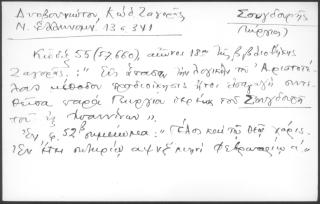 Δυοβουνιώτου, Κώδ. Ζαγορᾶς Σουγδουρῆς
Ν. Ἑλληνομν. 13 σ 341 (Γεώργιος)
Κῶδιξ 55 (Γ660), αἰῶνος 18ου τῆς βιβλιοθήκης
Ζαγορᾶς. : " Εἰς ἅπασαν τὴν λογικὴν τοῦ Ἀριστοτέ-
λους μέθοδον προδιοίκησις ἤτοι εἰσαγωγὴ συντε-
θεῖσα παρὰ Γεωργίου ἱερέως τοῦ Σουγδουρῆ
τοῦ ἐξ Ἰωαννίνων ".
Ἐν φ. 52β σημείωμα : " Τέλος καὶ τῷ Θεῷ χάρις.
Ἐν ἔτει σωτηρίῳ αψ Φεβρουαρίῳ α' "